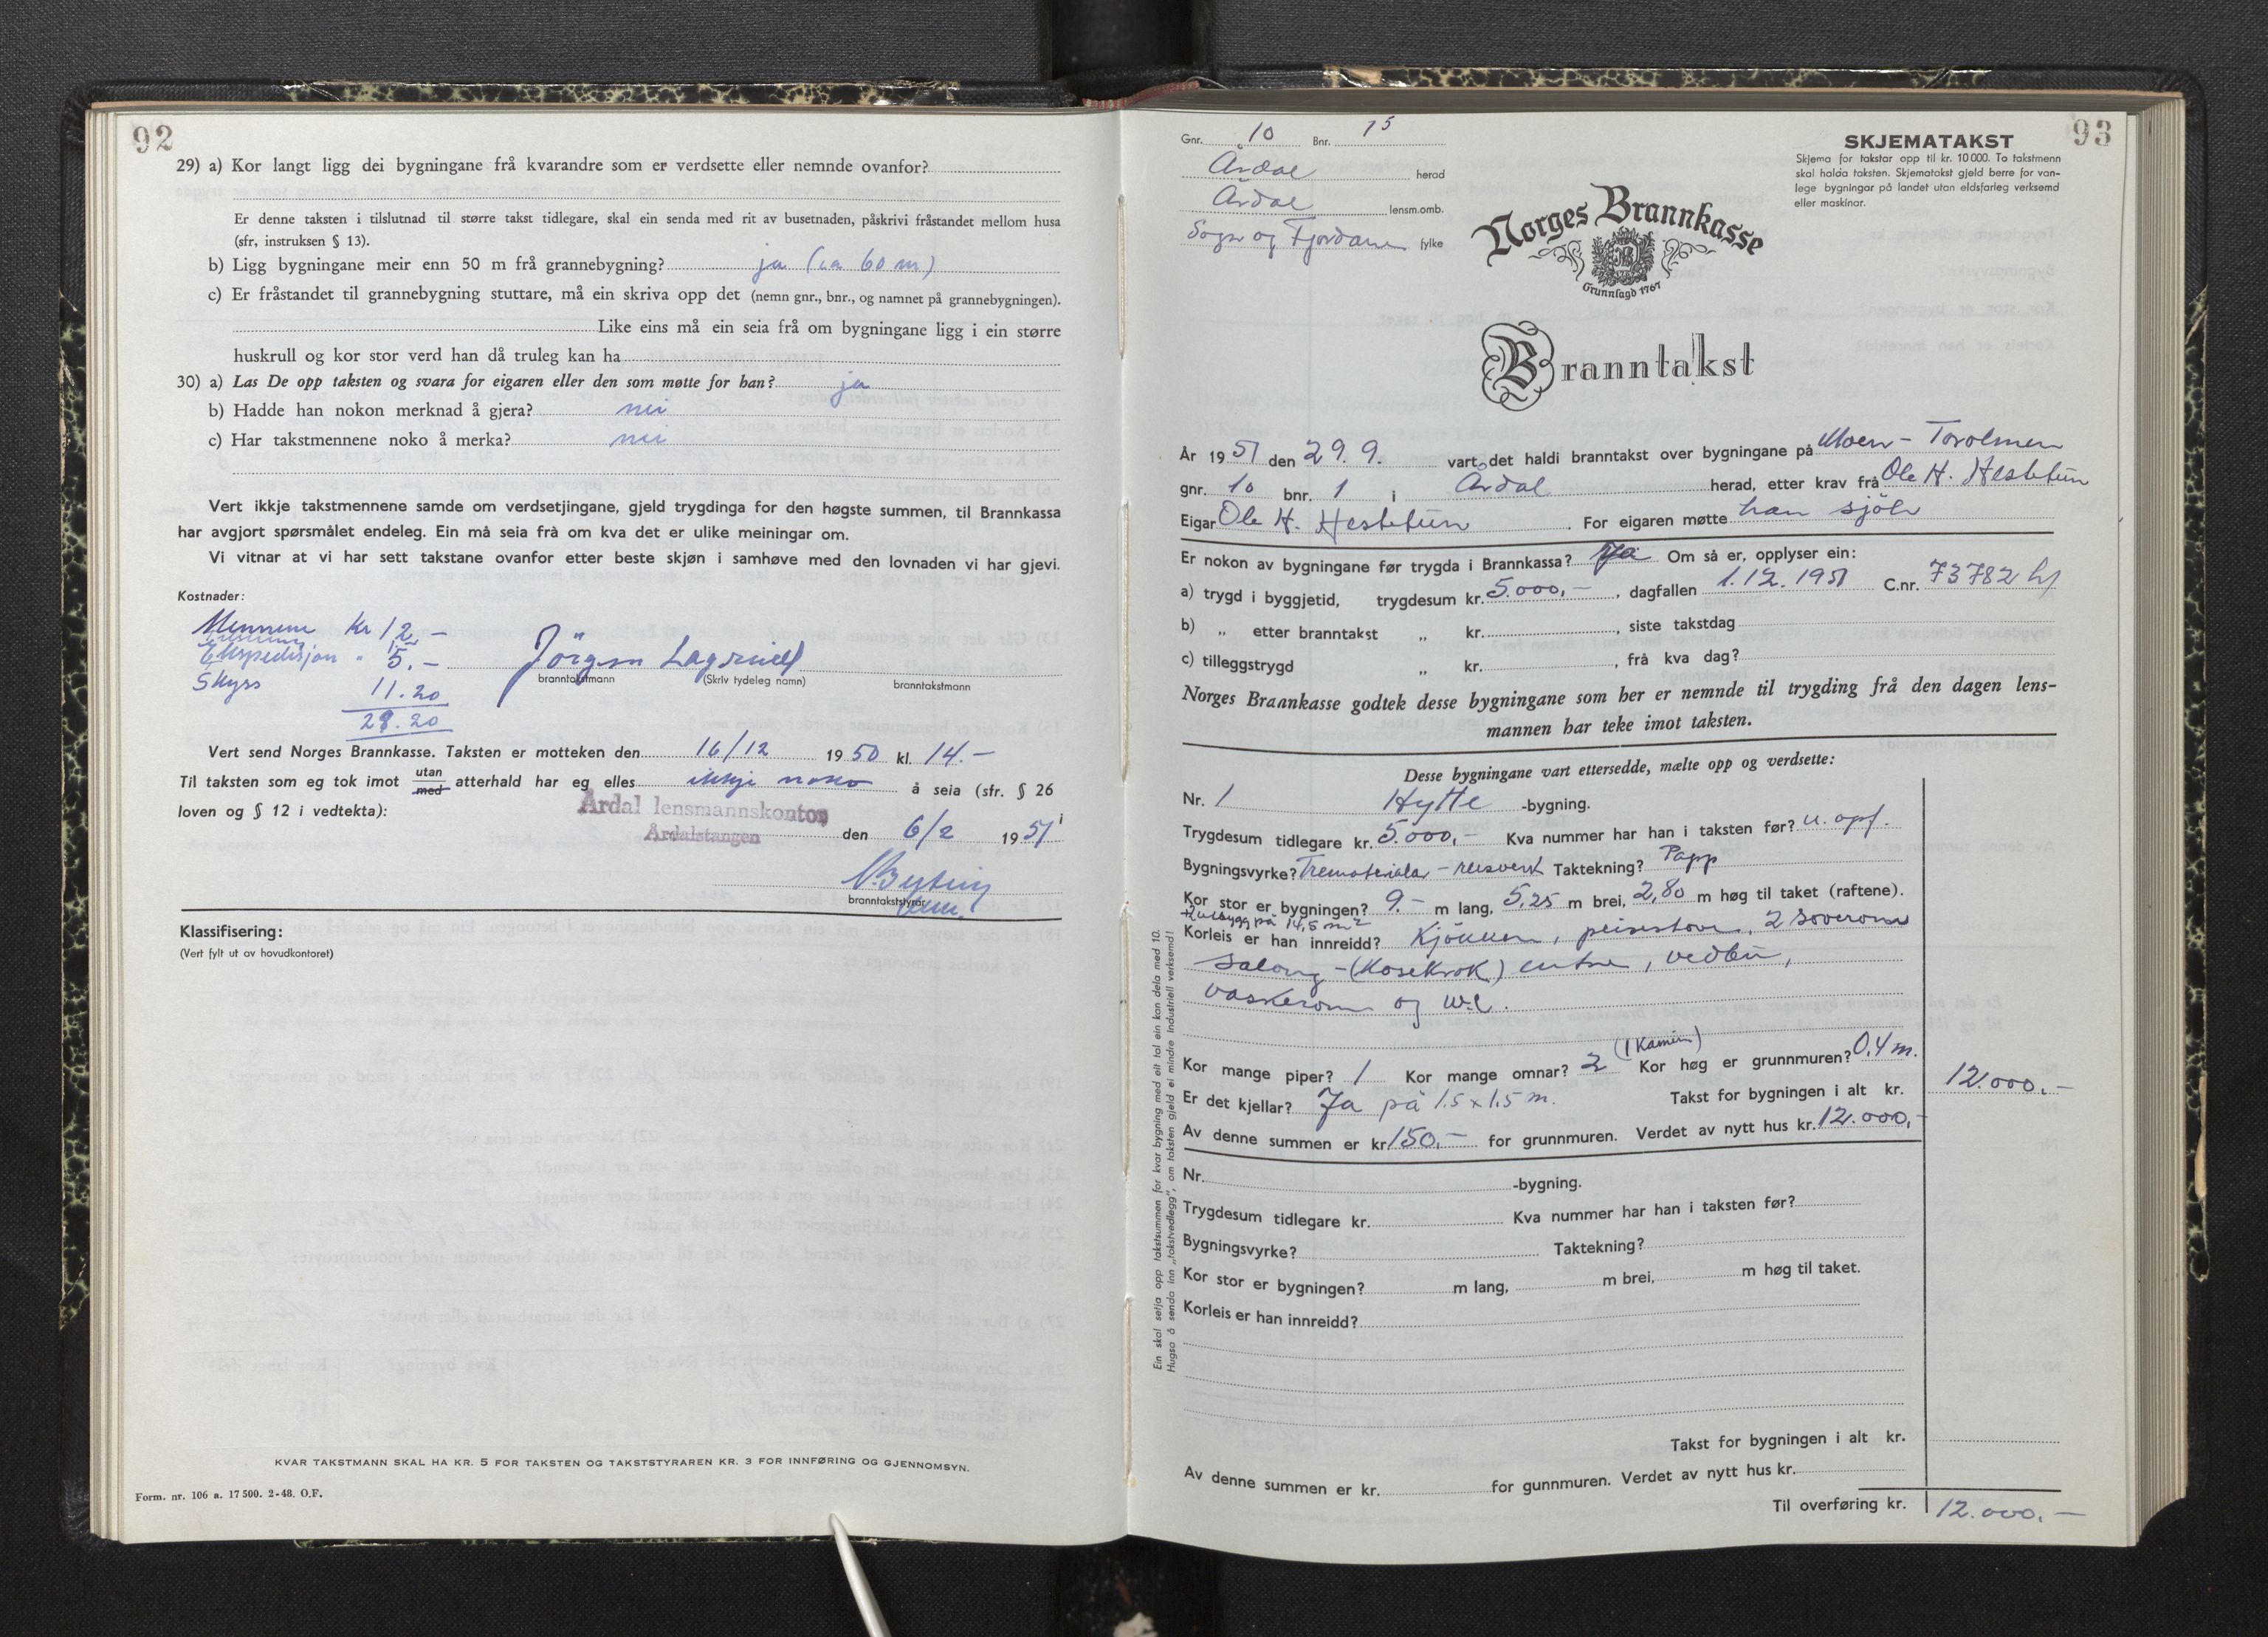 92
29) a) Kor langt ligg dei bygningane frå kvarandre som er verdsette eller nemnde ovanfor?
Er denne taksten i tilslutnad til større takst tidlegare, skal ein senda med rit av busetnaden, påskrivi fråstandet mellom husa
(sfr, instruksen § 13).
b) Ligg bygningane meir enn 50 m frå grannebygning? ja (ca 60 m)
c) Er fråstandet til grannebygning stuttare, må ein skriva opp det (nemn gnr., bnr., og namnet på grannebygningen).
Like eins må ein seia frå om bygningane ligg i ein større
huskrull og kor stor verd han då truleg kan ha
30) a) Las De opp taksten og svara for eigaren eller den som møtte for han? ja
b) Hadde han nokon merknad å gjera? nei
c) Har takstmennene noko å merka? nei
Vert ikkje takstmennene samde om verdsetjingane, gjeld trygdinga for den høgste summen, til Brannkassa
har avgjort spørsmålet endeleg. Ein må seia frà om kva det er ulike meiningar om.
Vi vitnar at vi har sett takstane ovanfor etter beste skjøn i samhøve med den lovnaden vi har gjevi.
Kostnader:
Mennene Kr 12.-
Ekspedisjon " 5.-
Skyss 11.20
28.20
Jörgen
branntakstmann (Skriv tydeleg namn) branntakstmann
Vert send Norges Brannkasse. Taksten er motteken den 16/12 1950 kl. 14.-
Til taksten som eg tok imot utan med atterhald har eg elles ikkje noko å seia (sfr. § 26
loven og § 12 i vedtekta):
Årdal lensmannskontor
Årdalstangen den 6/2 1951
branntakststyrar
Klassifisering:
(Vert fylt ut av hovudkontoret)
KVAR TAKSTMANN SKAL HA KR. 5 FOR TAKSTEN OG TAKSTSTYRAREN KR. 3 FOR INNFØRING OG GJENNOMSYN.
Form. nr. 106 a. 17 500. 2-48. O.F.
93
Gnr. 10 Bnr. 15
Årdal herad
Årdal lensm.omb.
Sogn og Fjordane fylke
SKJEMATAKST
Skjema for takstar opp til kr. 10 000. To takstmenn
skal halda taksten. Skjematakst gjeld berre for van-
lege bygningar på landet utan eldsfarleg verksemd
eller maskinar.
Norges Brannkasse
Grunnlagd 1767
Branntakst
År 1951 den 29. 9. vart det haldi branntakst over bygningane på Moen - Torolmen
gnr. 10 bnr. 1 i Årdal herad, etter krav frå Ole H. Hestetun
Eigar Ole H. Hestetun. For eigaren møtte han sjölv
Er nokon av bygningane før trygda i Brannkassa? Ja Om så er, opplyser ein:
a) trygd i byggjetid, trygdesum kr. 5.000,-, dagfallen 1.12.1951 C.nr. 73782
b) „ etter branntakst „ kr. , siste takstdag
c) tilleggstrygd „ kr. , frå kva dag?
Norges Brannkasse godtek desse bygningane som her er nemnde til trygding frå den dagen lens-
mannen har teke imot taksten.
Desse bygningane vart ettersedde, mælte opp og verdsette:
Nr. 1 Hytte -bygning.
Trygdesum tidlegare kr. 5.000,- Kva nummer har han i taksten før? u. opf.
Bygningsvyrke? Tremateriala - reisverk Taktekning? Papp
Kor stor er bygningen? 9.- m lang, 5,25 m brei, 2,80 m høg til taket (raftene).
+ utbygg på 14,5 m²
Korleis er han innreidd? Kjökken, peisestove, 2 soverom
salong - (Kosekrok) entre, vedbu,
vaskerom og w.c.
Kor mange piper? 1 Kor mange omnar? 2 (1 Kamin) Kor høg er grunnmuren? 0,4 m.
Er det kjellar? Ja på 1.5 x 1.5 m. Takst for bygningen i alt kr. 12.000.-
Av denne summen er kr. 150,- for grunnmuren. Verdet av nytt hus kr. 12.000,-
Nr. -bygning.
Trygdesum tidlegare kr. Kva nummer har han i taksten før?
Bygningsvyrke? Taktekning?
Kor stor er bygningen? m lang, m brei, m høg til taket.
Korleis er han innreidd?
Takst for bygningen i alt kr.
Av denne summen er kr. for gunnmuren. Verdet av nytt hus kr.
Til overføring kr. 12.000.-
Ein skal setja opp takstsummen for kvar bygning med eit tal ein kan dela med 10.
Hugsa å senda inn „takstvedlegg”, om taksten gjeld ei mindre industriell verksemd!